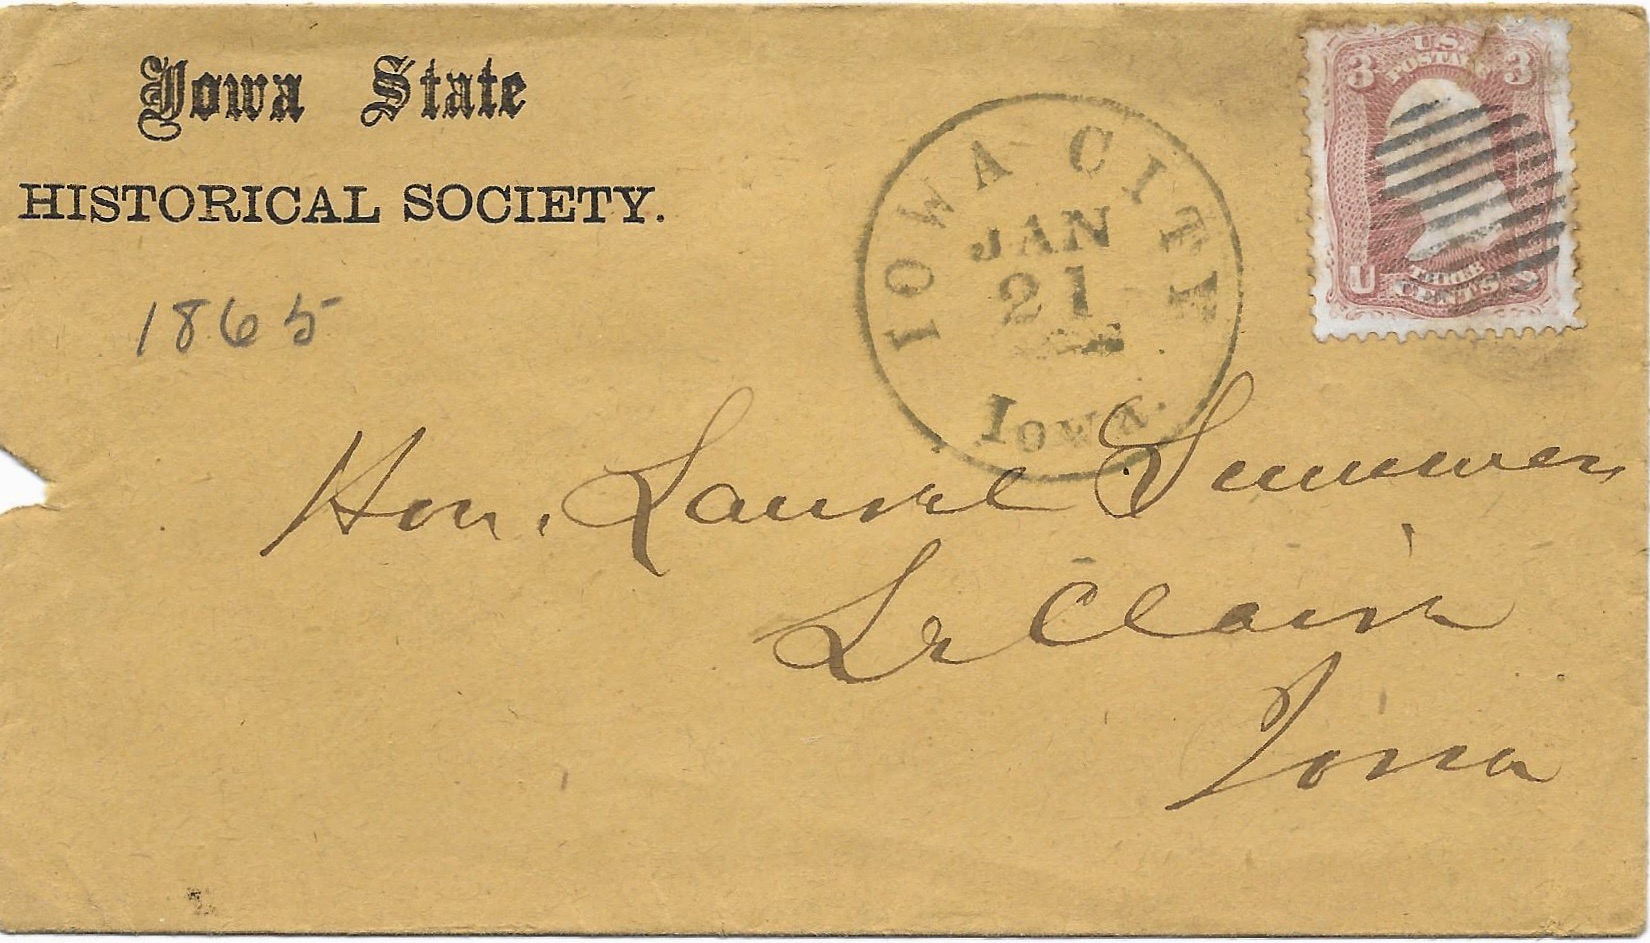 Iowa State
HISTORICAL SOCIETY.
1865
IOWA CITY
JAN
21
IOWA.
U.S.
POSTAGE
3 3
U S
THREE
CENTS
Hon. Laurel Summers
Le Claire
Iowa